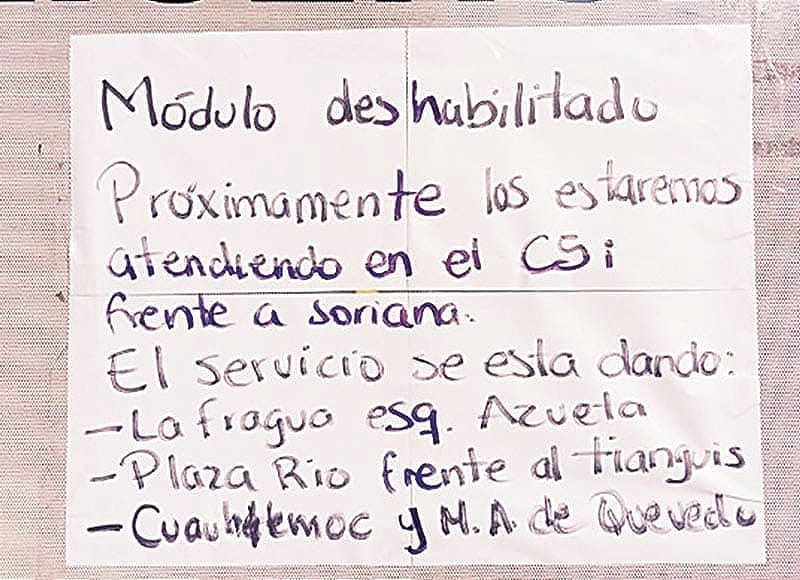 Módulo deshabilitado
Próximamente los estaremos
atendiendo en el CSi
frente a soriana.
El servicio se esta dando:
- La fragua esq. Azueta
- Plaza Rio frente al tianguis
- Cuauhtemoc y M.A. de Quevedo